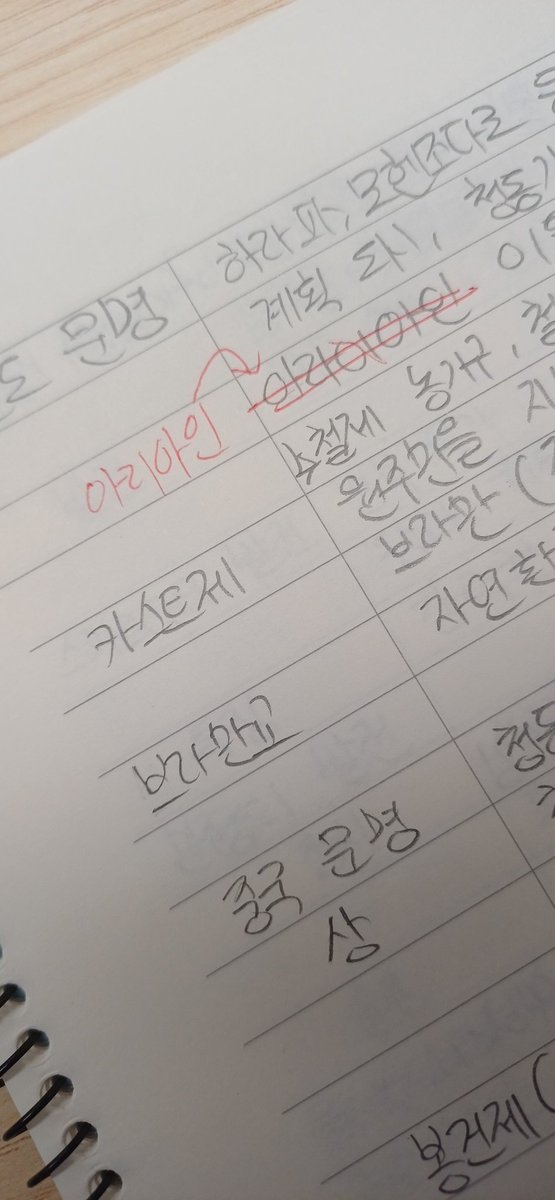 문명 하라파, 모헨조다로
계획 도시, 청동기
아리아인 아리아인 이
철제 농기구, 철
원주민을 지
카스트제 브라만 (
자연환
브라만교
중국 문명 청동
상
봉건제 (